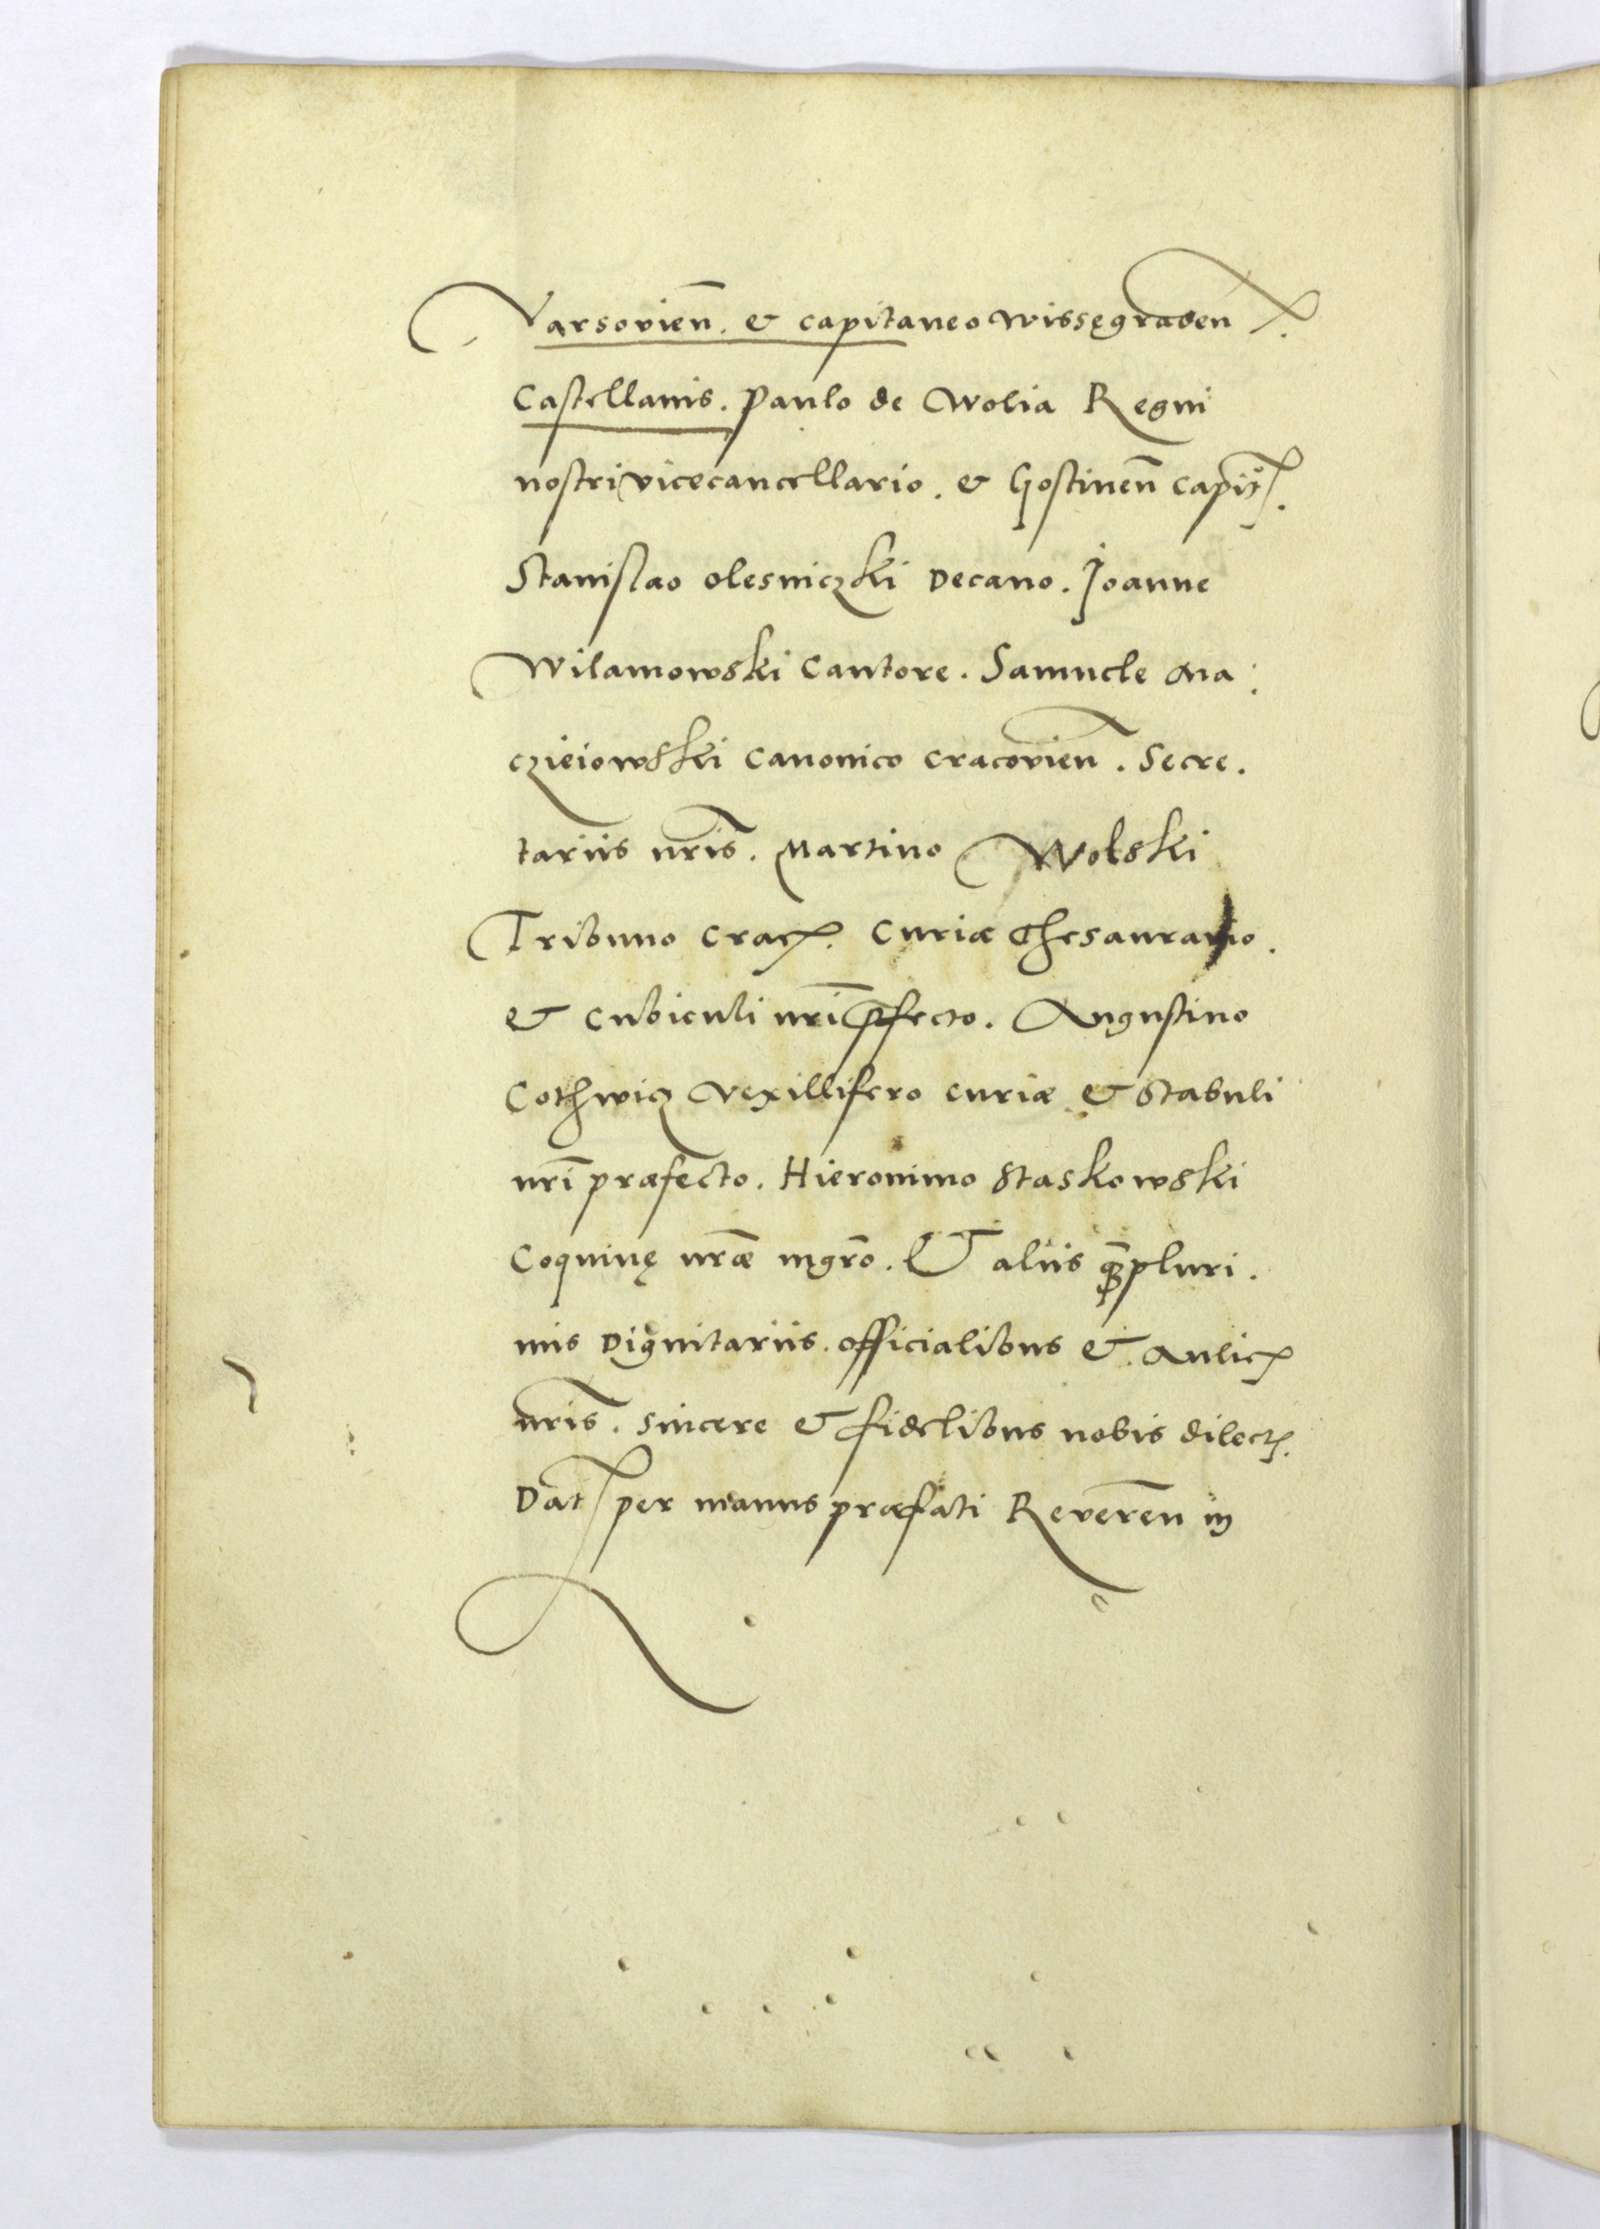 Varsovień. & capitaneo Wissęgraden.
Castellanis. Paulo de Wolia Regni
nostri vicecancellario. & Gostineñ capit.
Stanislao Olesniczki Decano. Joanne
Wilamowski Cantore. Samuele Ma:
czieiowski Canonico Cracovieñ. Secre.
tariis nr̃is. Martino Wolski
Tribuno Crac. Curiæ Thesaurario.
& cubiculi nr̃i p̃fecto. Augustino
Cothwicz Vexillifero curiæ & stabuli
nr̃i præfecto. Hieronimo Staskowski
Coquinę nr̃æ mgr̃o. Et aliis q̃pluri.
mis Dignitariis. officialibus & Aulic
nr̃is. sincere & fidelibus nobis dilect.
Dat per manus præfati Rever̃en in